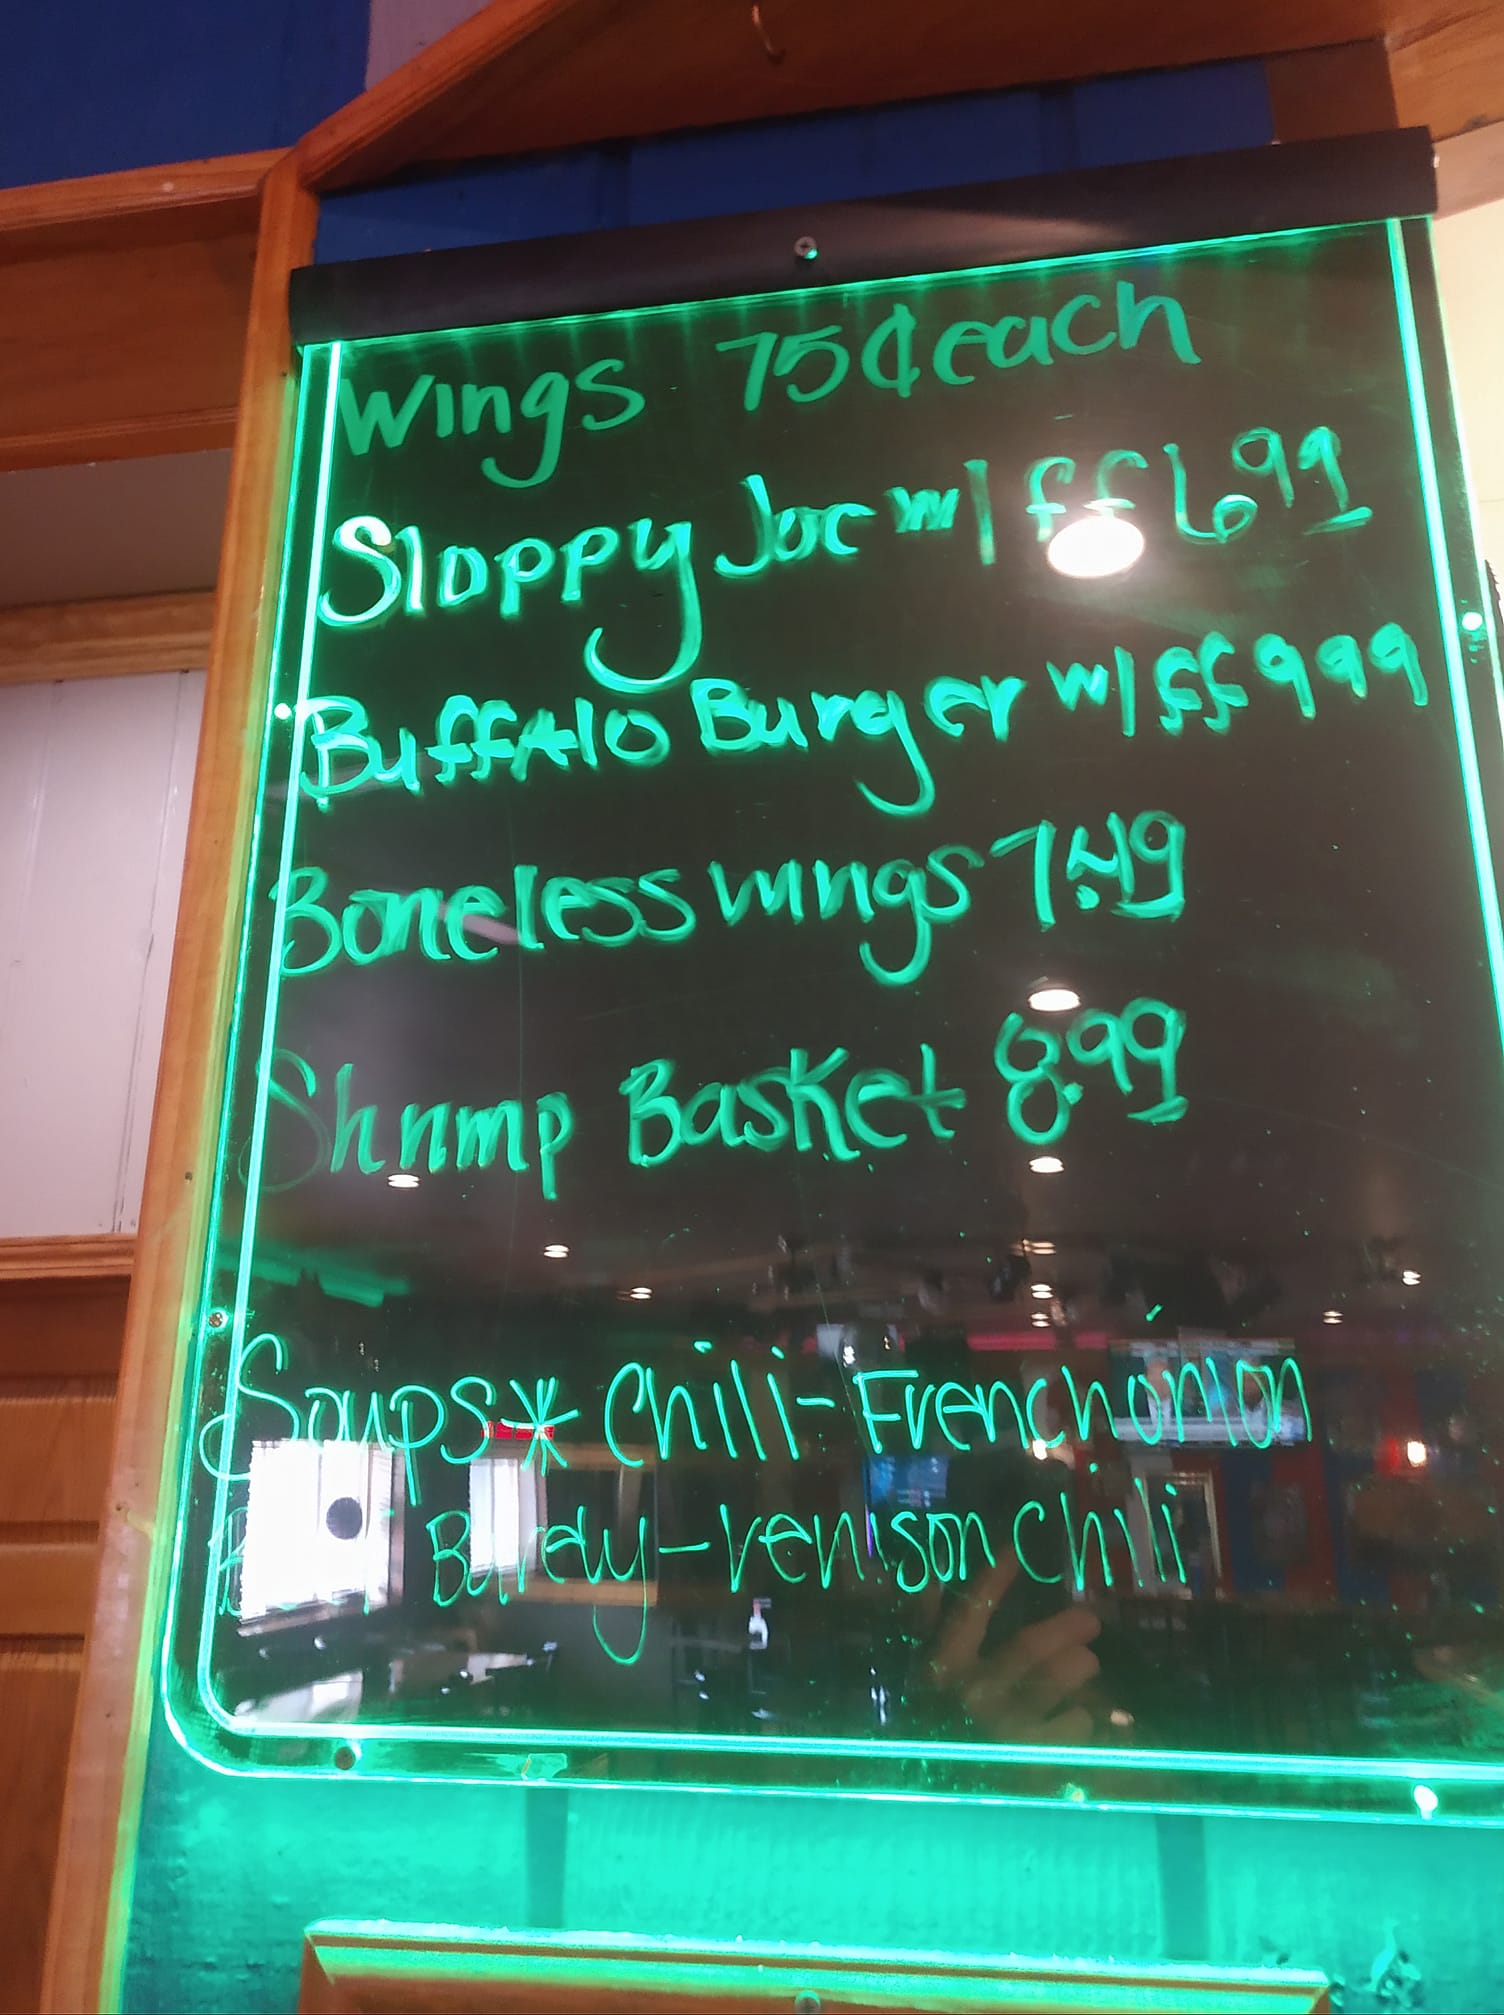 Wings 75¢ each
Sloppy Joe w/ ff 6.99
Buffalo Burger w/ ff 9.99
Boneless wings 7.49
Shrimp Basket 8.99
Soups* Chili-French onion
Beef Barely-venison Chili